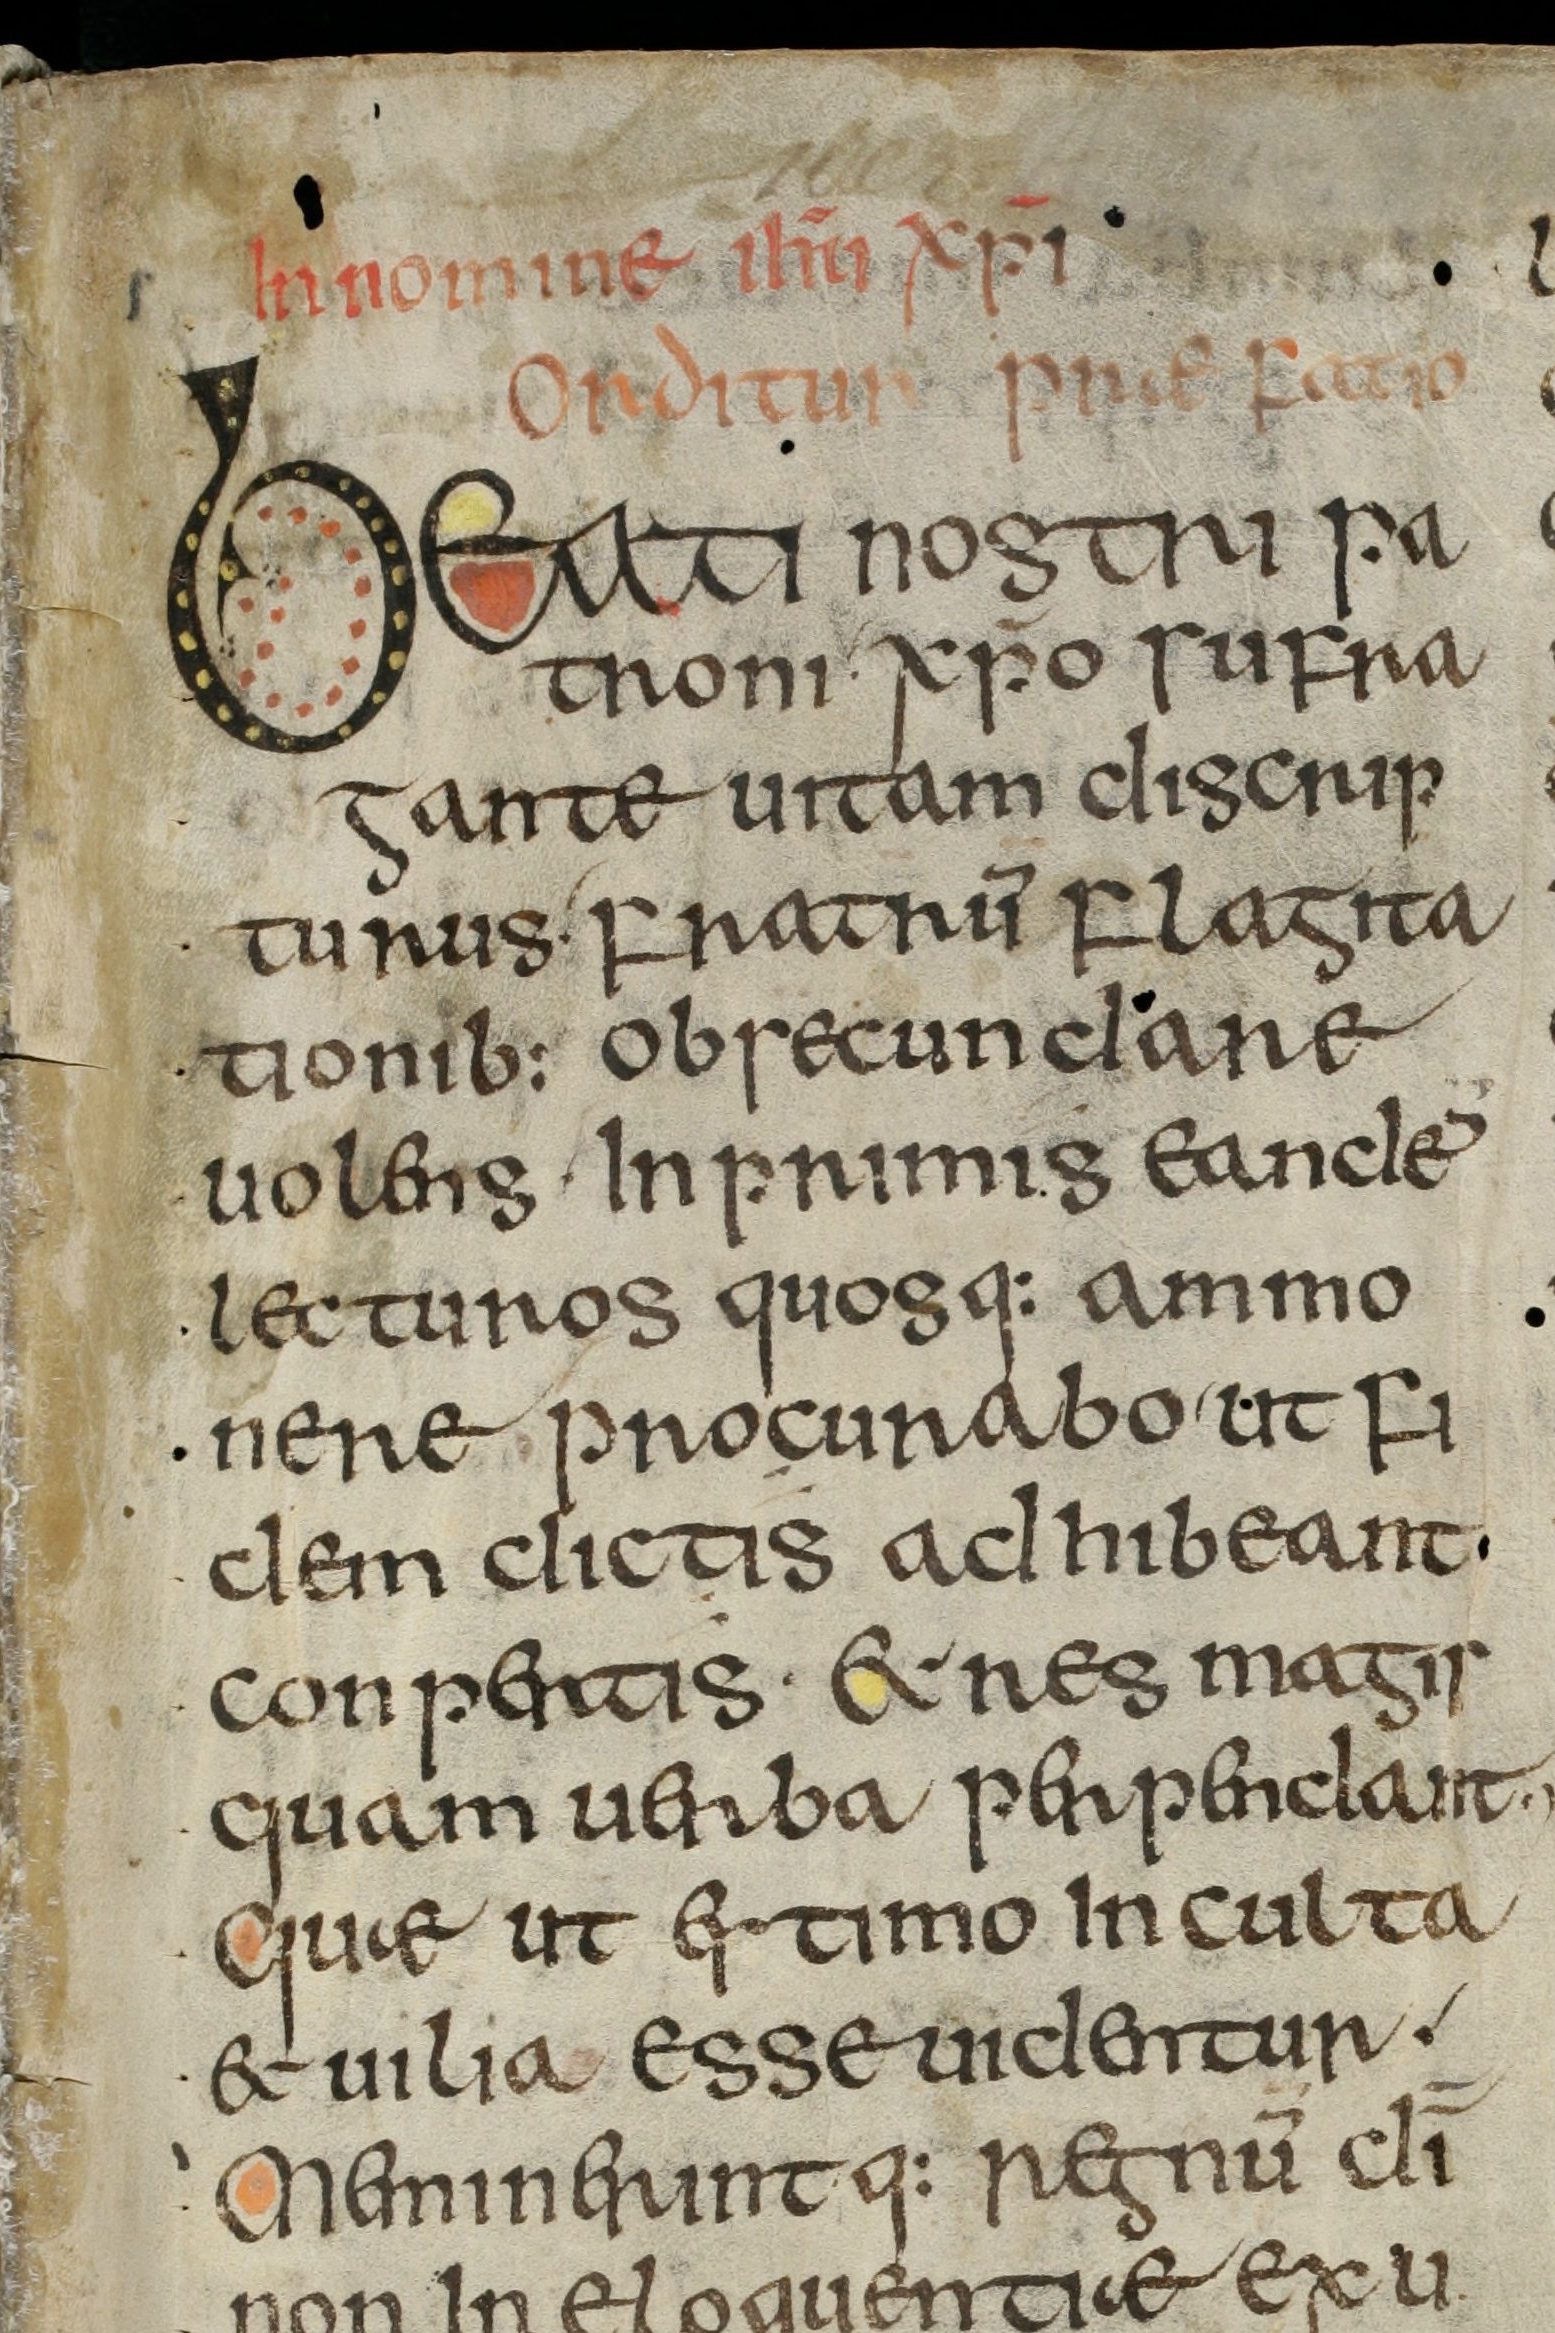 In nomine ihū xp̄i
Orditur praefatio
Beati nostri pa
troni xp̄o sufra
gante uitam discrip
turus fratrū flagita
tionib: obsecundare
uolens · In primis eandē
lecturos quosq: ammo
nere procurabo ut fi
dem dictis adhibeant.
conpertis · & res magis
quam uerba perpendant.
Quae ut estimo inculta
& uilia esse uidentur.
Meminerintq: regnū dī
non in eloquentiae exu